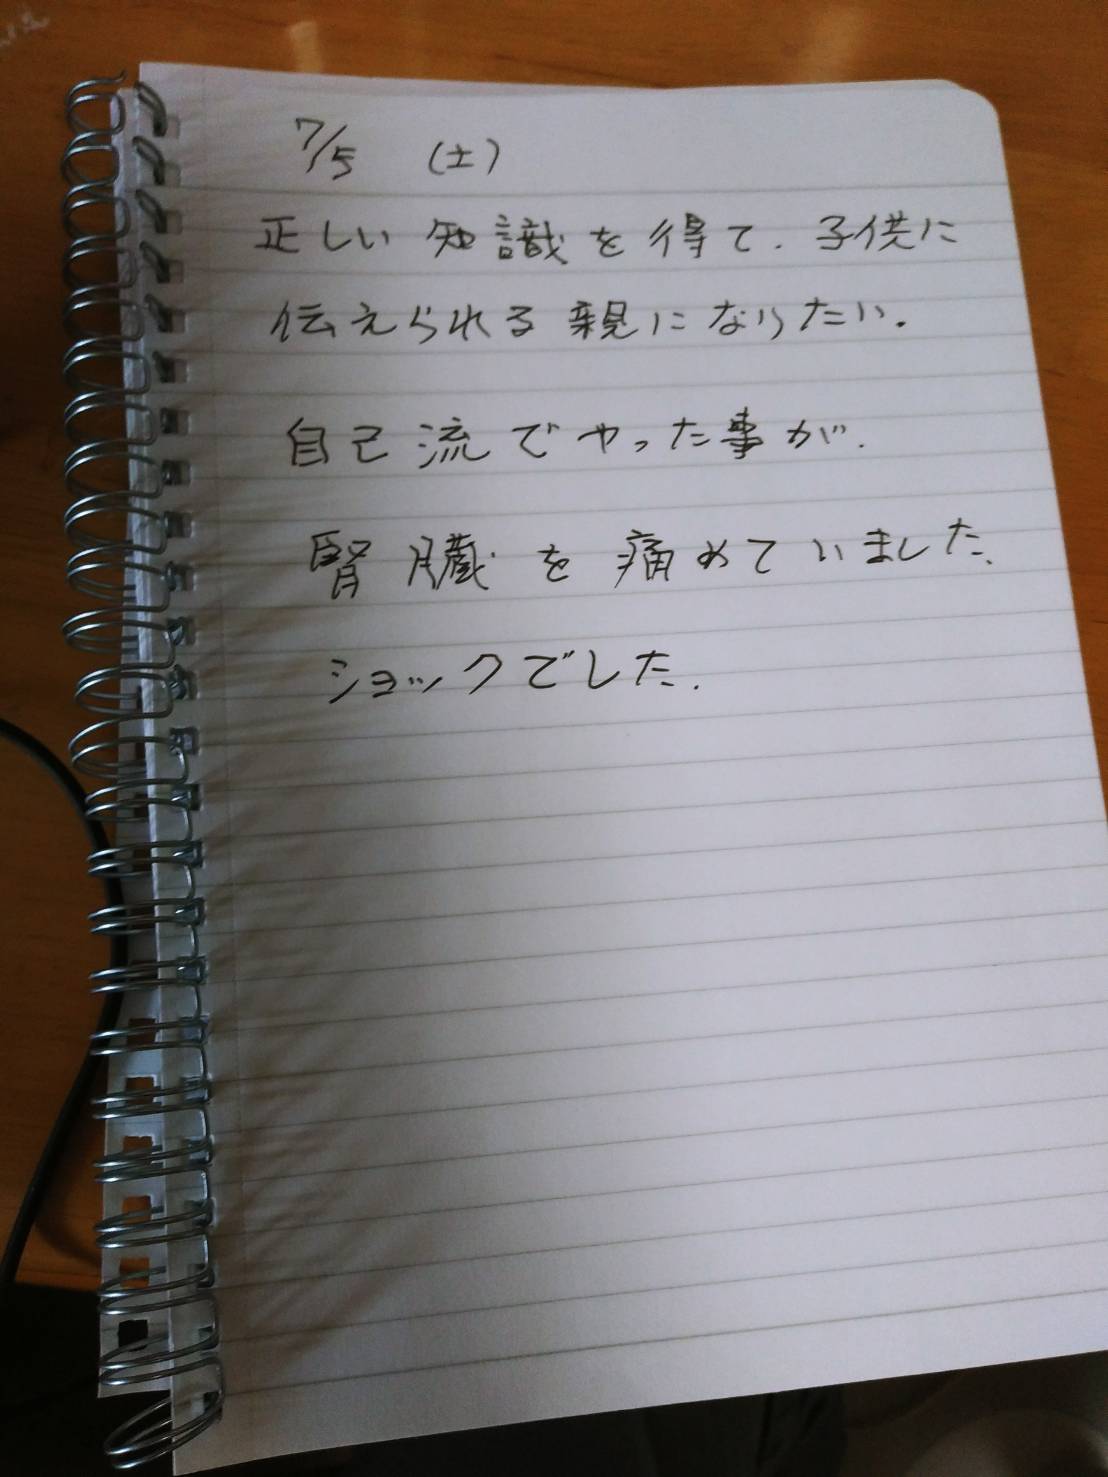 7/5 (土)
正しい知識を得て.子供に
伝えられる親になりたい.
自己流でやった事が.
腎臓を痛めていました.
ショックでした.